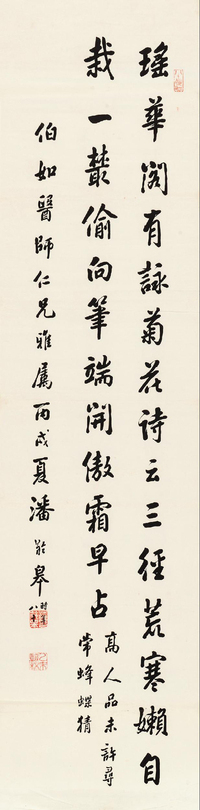 瑤華閣有詠菊花诗云三徑荒寒嬾自
栽一叢偷向筆端開傲霜早占
高人品未許尋
常蜂蝶猜
伯如醫師仁兄雅屬丙戌夏潘齡皋
時年
八十